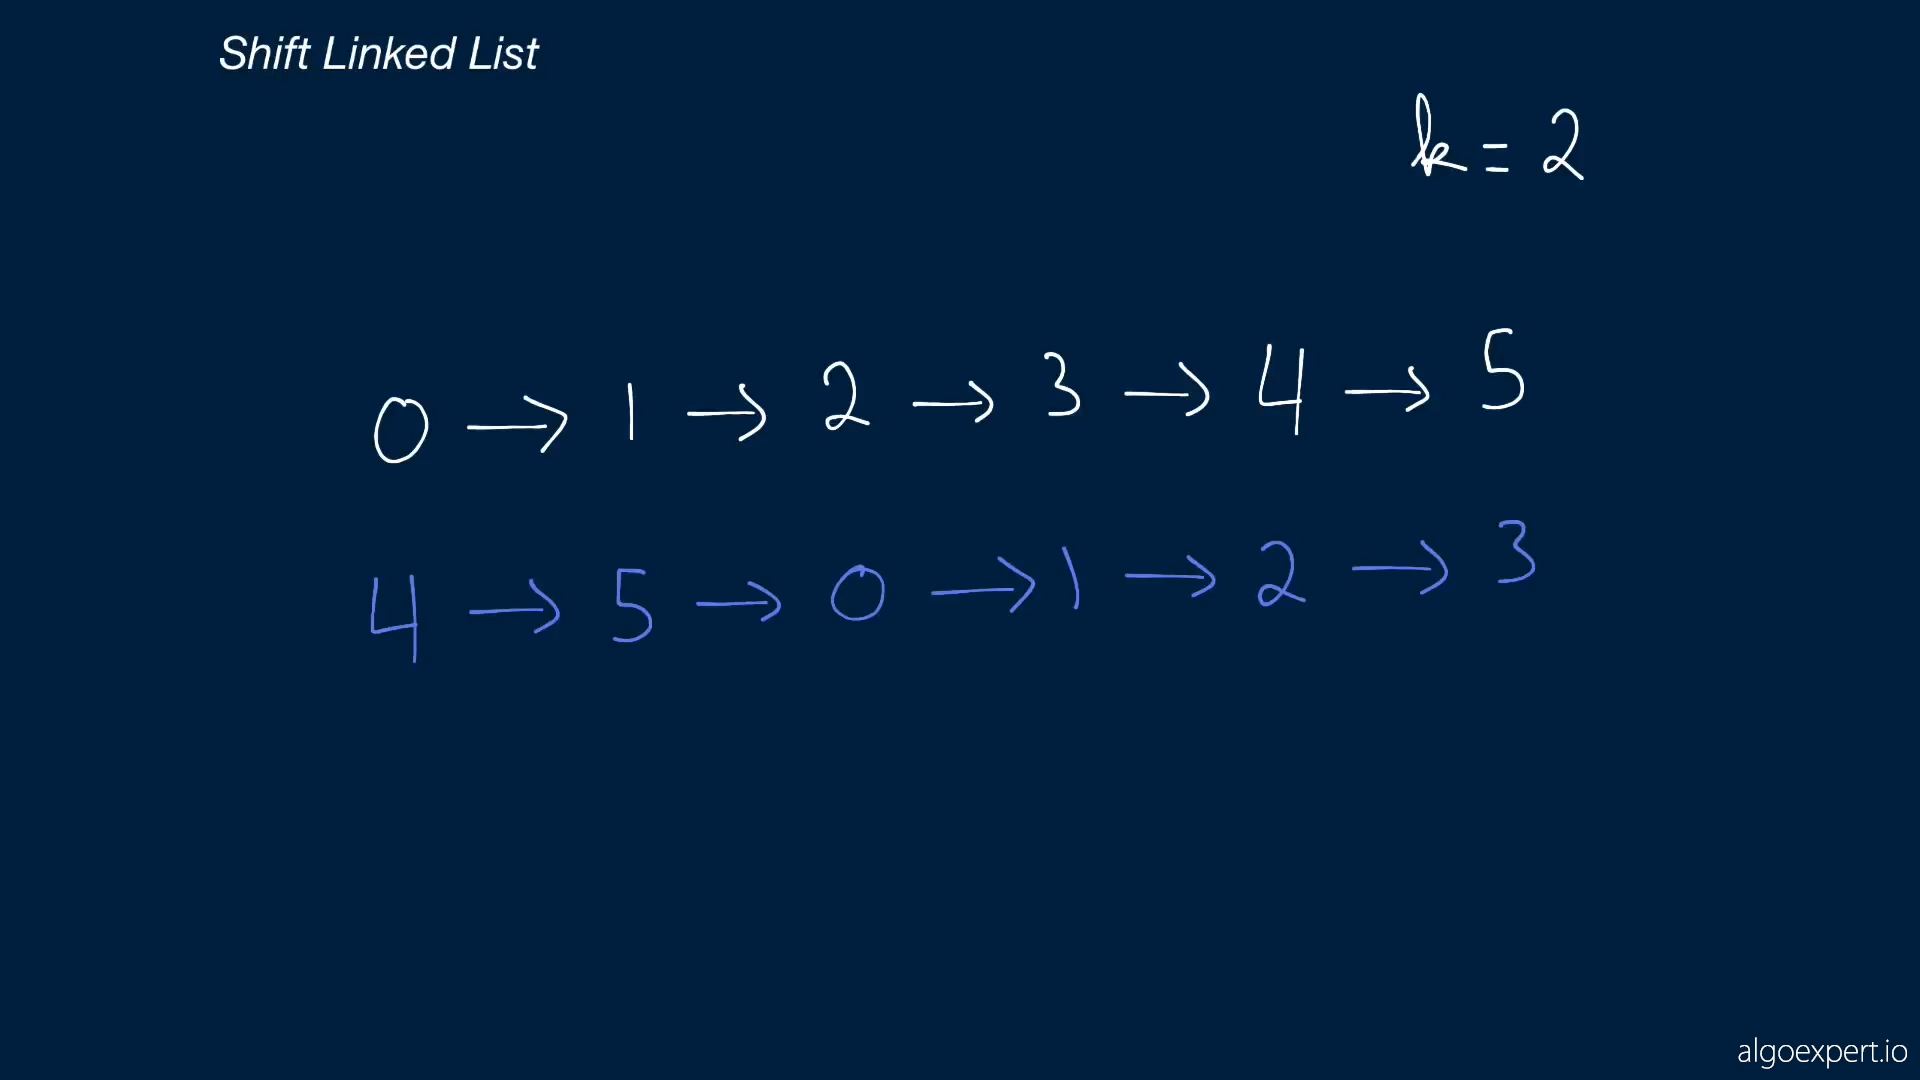 Shift Linked List
k = 2
0 → 1 → 2 → 3 → 4 → 5
4 → 5 → 0 → 1 → 2 → 3
algoexpert.io